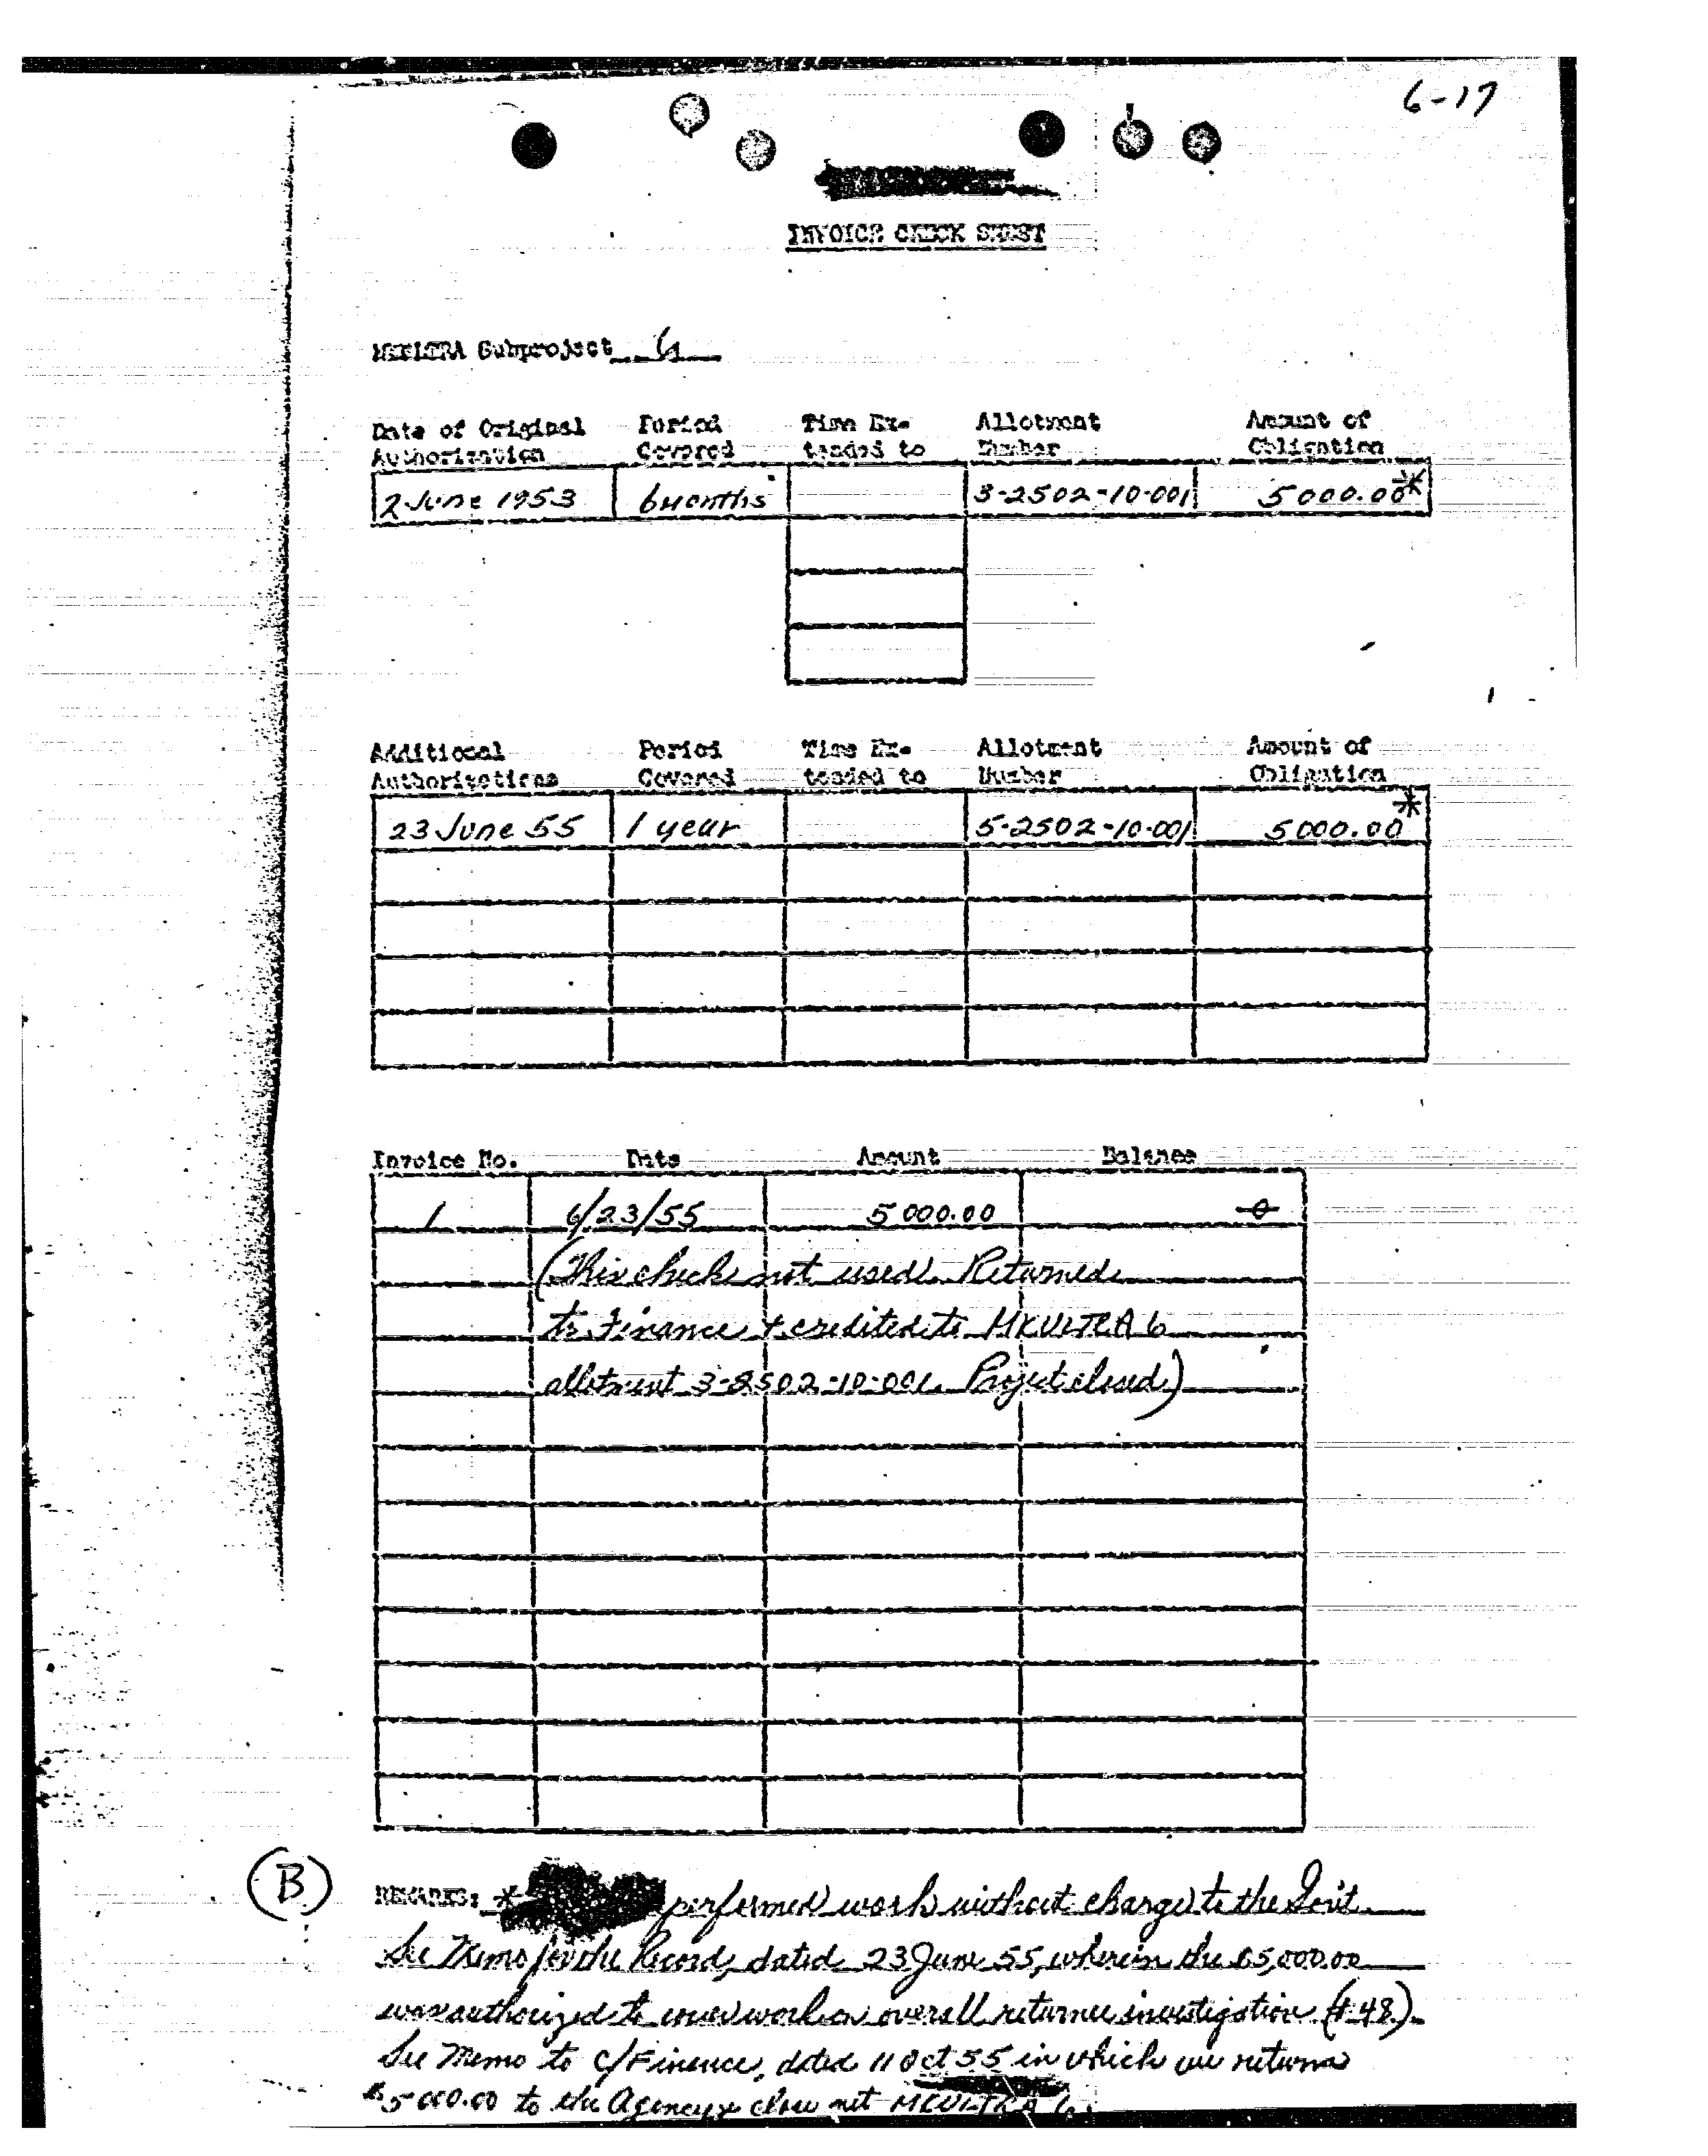 6-17
INVOICE CHECK SHEET
MKULTRA Subproject 6
Date of Original Period Time Ex- Allotment Amount of
Authorization Covered tended to Number Obligation
2 June 1953 6 months 3-2502-10-001 5000.00*
Additional Period Time Ex- Allotment Amount of
Authorizations Covered tended to Number Obligation
23 June 55 1 year 5-2502-10-001 5000.00*
Invoice No. Date Amount Balance
1 6/23/55 5000.00 -0-
(This check not used. Returned
to Finance & credited to MKULTRA 6
allotment 3-2502-10-001. Project closed)
(B)
REMARKS: * performed work without charge to the Gov't.
See Memo for the Record, dated 23 June 55, wherein the $5,000.00
was authorized to cover work on overall returnee investigation (# 48).
See Memo to C/Finance, dated 11 Oct 55 in which we return
$5000.00 to the Agency & close out MKULTRA 6.